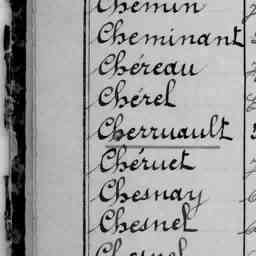 Chemin
Cheminant
Chéreau
Chérel
Cherruault
Chéruet
Chesnay
Chesnel